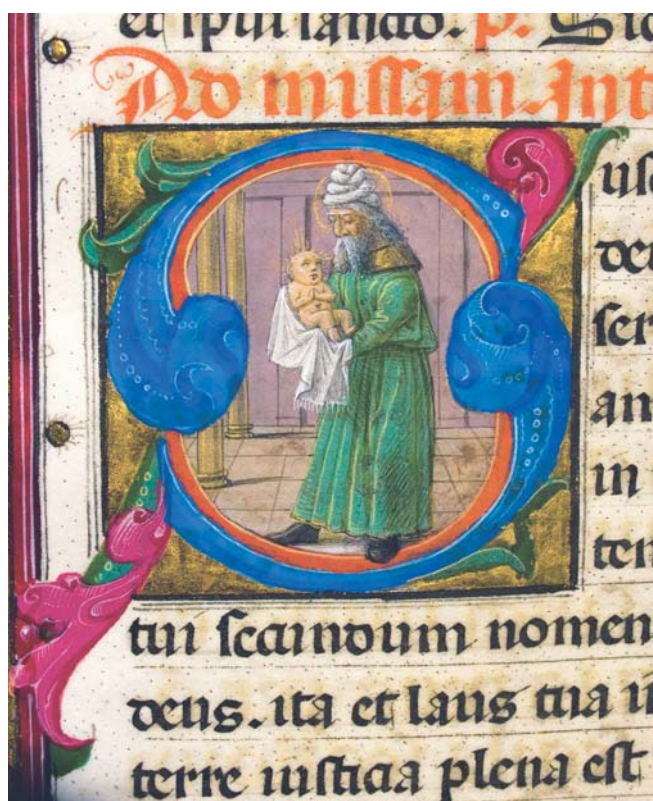 et spiui sancto. p. Sic
Ad missam. Int
Susc
deu
ser
an
in
tem
tui secundum nomen
deus. ita et laus tua i
terre iusticia plena est